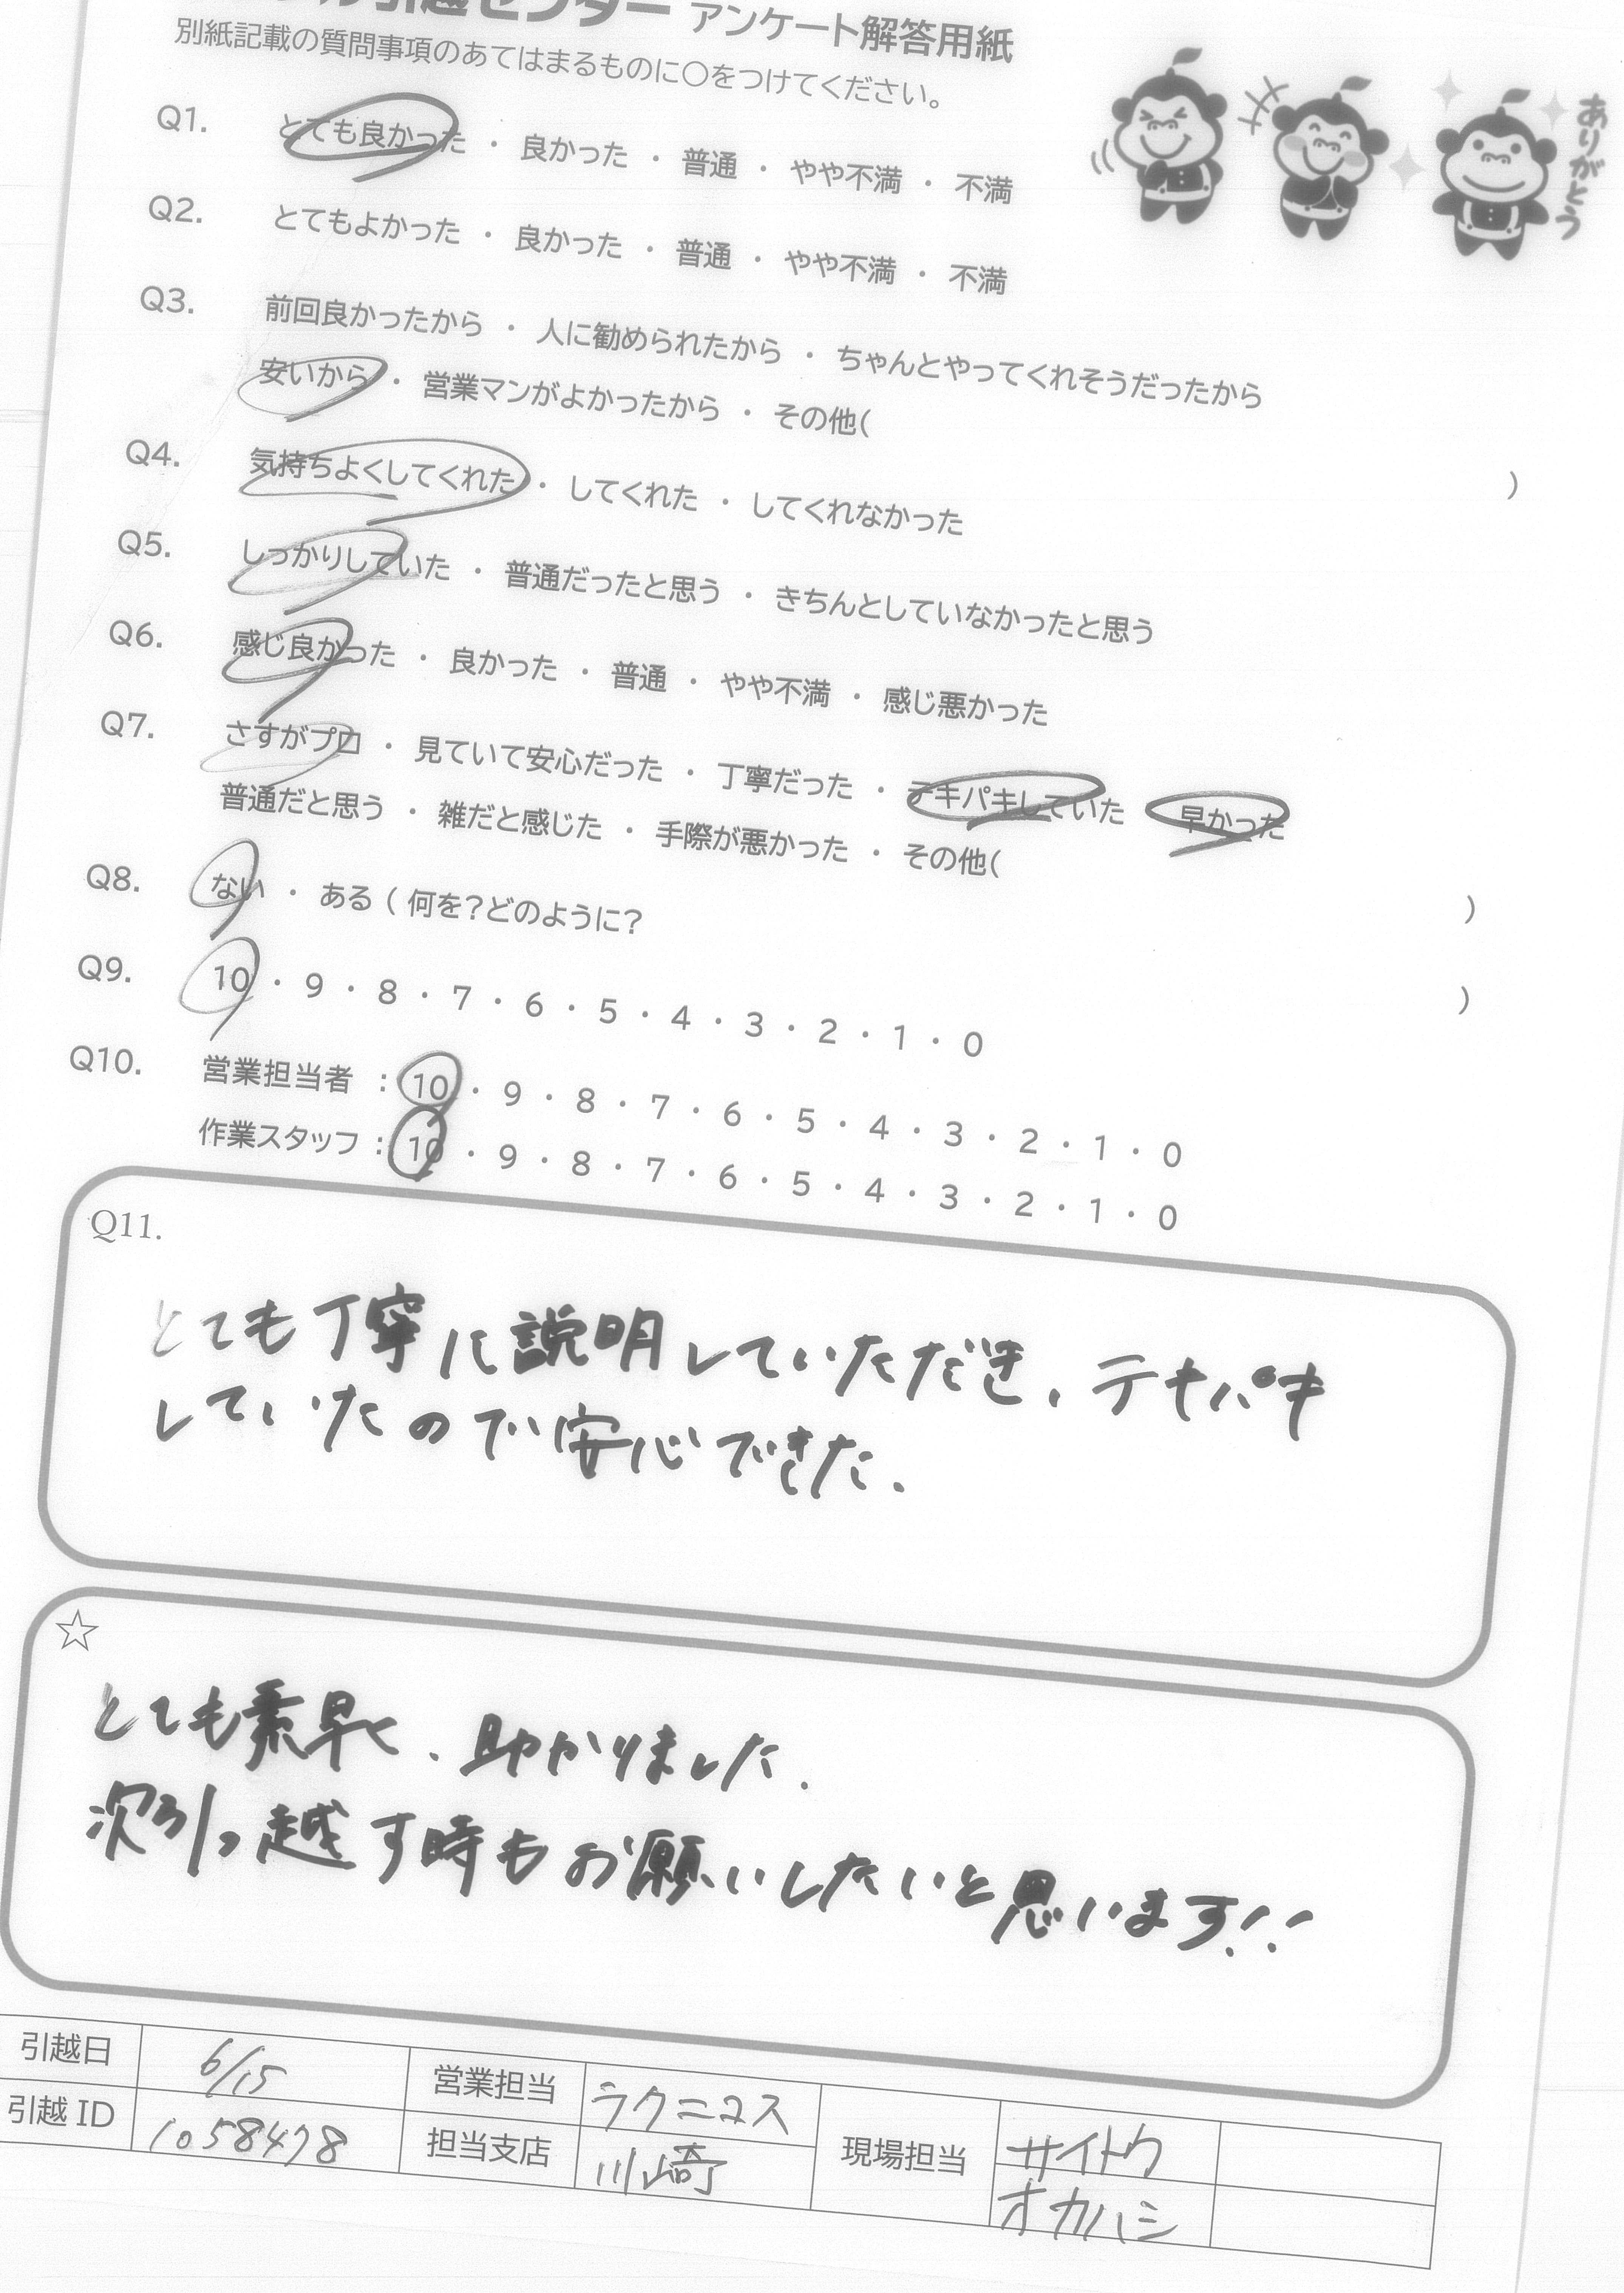 引越センター アンケート解答用紙
別紙記載の質問事項のあてはまるものに○をつけてください。
ありがとう
Q1. とても良かった ・ 良かった ・ 普通 ・ やや不満 ・ 不満
Q2. とてもよかった ・ 良かった ・ 普通 ・ やや不満 ・ 不満
Q3. 前回良かったから ・ 人に勧められたから ・ ちゃんとやってくれそうだったから
安いから ・ 営業マンがよかったから ・ その他( )
Q4. 気持ちよくしてくれた ・ してくれた ・ してくれなかった
Q5. しっかりしていた ・ 普通だったと思う ・ きちんとしていなかったと思う
Q6. 感じ良かった ・ 良かった ・ 普通 ・ やや不満 ・ 感じ悪かった
Q7. さすがプロ ・ 見ていて安心だった ・ 丁寧だった ・ テキパキしていた 早かった
普通だと思う ・ 雑だと感じた ・ 手際が悪かった ・ その他( )
Q8. ない ・ ある ( 何を?どのように? )
Q9. 10 ・ 9 ・ 8 ・ 7 ・ 6 ・ 5 ・ 4 ・ 3 ・ 2 ・ 1 ・ 0
Q10. 営業担当者 : 10 ・ 9 ・ 8 ・ 7 ・ 6 ・ 5 ・ 4 ・ 3 ・ 2 ・ 1 ・ 0
作業スタッフ : 10 ・ 9 ・ 8 ・ 7 ・ 6 ・ 5 ・ 4 ・ 3 ・ 2 ・ 1 ・ 0
Q11.
とても丁寧に説明していただき、テキパキ
していたので安心できた.
☆
とても素早く、助かりました.
次引っ越す時もお願いしたいと思います!!
引越日 6/15 営業担当 ラクニコス 現場担当 サイトウ
引越 ID 1058478 担当支店 川崎 オカハシ